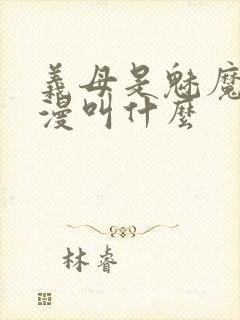 義母是魅魔
漫叫什麼
林睿